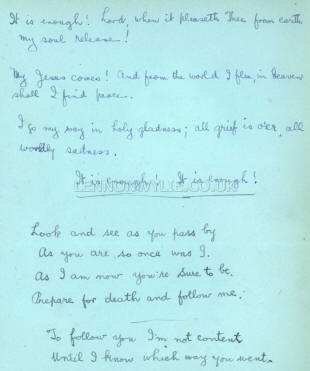 It is enough! Lord, when it pleaseth Thee from earth
my soul release!
My Jesus comes! And from the world I flee, in Heaven
shall I find peace.
I go my way in holy gladness; all grief is o'er, all
worldly sadness.
It is enough! It is enough!
LENNONWYLIE.CO.UK
Look and see as you pass by
As you are, so once was I.
As I am now you're sure to be.
Prepare for death and follow me.
To follow you I'm not content
Until I know which way you went.